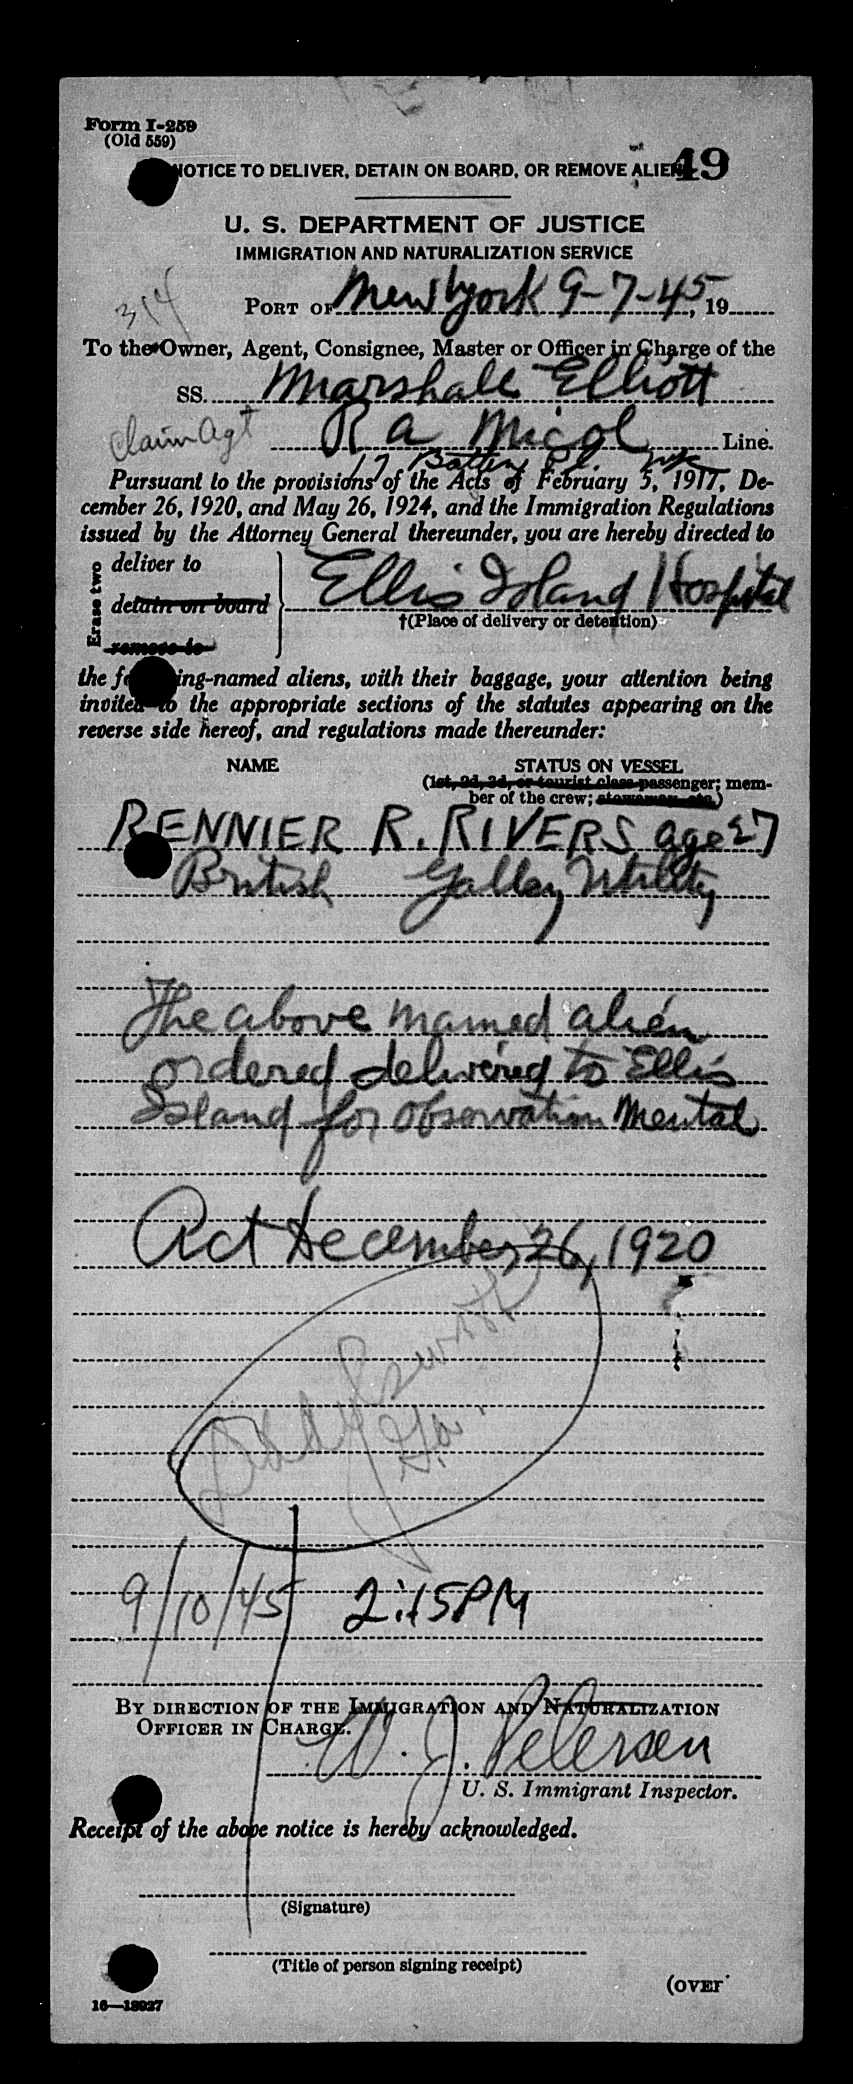 Form I-259
(Old 559)
NOTICE TO DELIVER, DETAIN ON BOARD, OR REMOVE ALIEN
49
U. S. DEPARTMENT OF JUSTICE
IMMIGRATION AND NATURALIZATION SERVICE
314
PORT OF New York 9-7-45, 19
To the Owner, Agent, Consignee, Master or Officer in Charge of the
SS. Marshall Elliott
Claim Agt R A Micol Line.
17 Battery Pl.
Pursuant to the provisions of the Acts of February 5, 1917, De-
cember 26, 1920, and May 26, 1924, and the Immigration Regulations
issued by the Attorney General thereunder, you are hereby directed to
Erase two
deliver to
detain on board
remove to
Ellis Island Hospital
†(Place of delivery or detention)
the following-named aliens, with their baggage, your attention being
invited to the appropriate sections of the statutes appearing on the
reverse side hereof, and regulations made thereunder:
NAME STATUS ON VESSEL
(1st, 2d, 3d, or tourist class passenger; mem-
ber of the crew; stowaway, etc.)
RENNIER R. RIVERS age 27
British Galley Utility
The above named alien
ordered delivered to Ellis
Island for observation Mental
Act December 26, 1920
9/10/45 2:15PM
BY DIRECTION OF THE IMMIGRATION AND NATURALIZATION
OFFICER IN CHARGE.
W. J. Petersen
U. S. Immigrant Inspector.
Receipt of the above notice is hereby acknowledged.
(Signature)
(Title of person signing receipt)
(OVER
16—18927